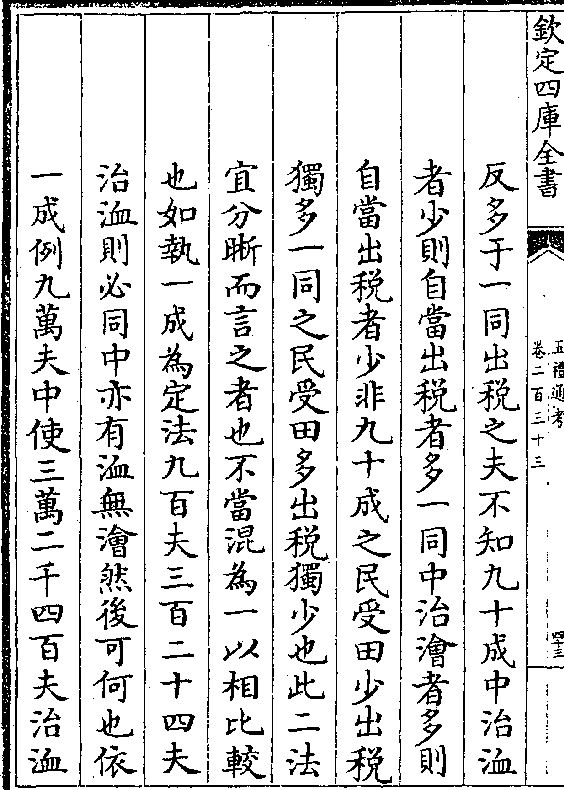 欽定四庫全書
五禮通考
卷二百三十三
四三
反多于一同出税之夫不知九十成中治洫
者少則自當出税者多一同中治澮者多則
自當出税者少非九十成之民受田少出税
獨多一同之民受田多出税獨少也此二法
宜分晣而言之者也不當混為一以相比較
也如執一成為定法九百夫三百二十四夫
治洫則必同中亦有洫無澮然後可何也依
一成例九萬夫中使三萬二千四百夫治洫